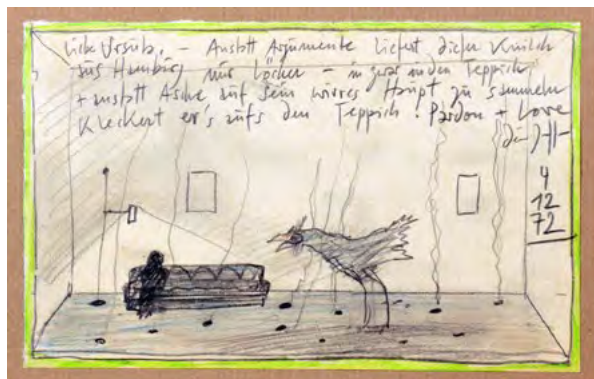 Liebe Ursula, – Anstatt Argumente liefert dieser Knilch
aus Hamburg nur Löcher – in in den Teppich
+ anstatt Asche auf sein wirres Haupt zu sammeln
Kleckert er's aufs den Teppich. Pardon + Love
dein
4
12
72